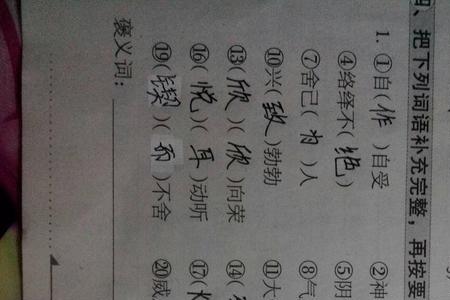 四、把下列词语补充完整，再按要
1. ①自(作)自受 ②神
④络绎不(绝) ⑤阴
⑦舍己(为)人 ⑧气
⑩兴(致)勃勃 ⑪大
⑬(欣)(欣)向荣 ⑭(
⑯(悦)(耳)动听 ⑰
⑲(锲)(而)不舍 ⑳威
褒义词：